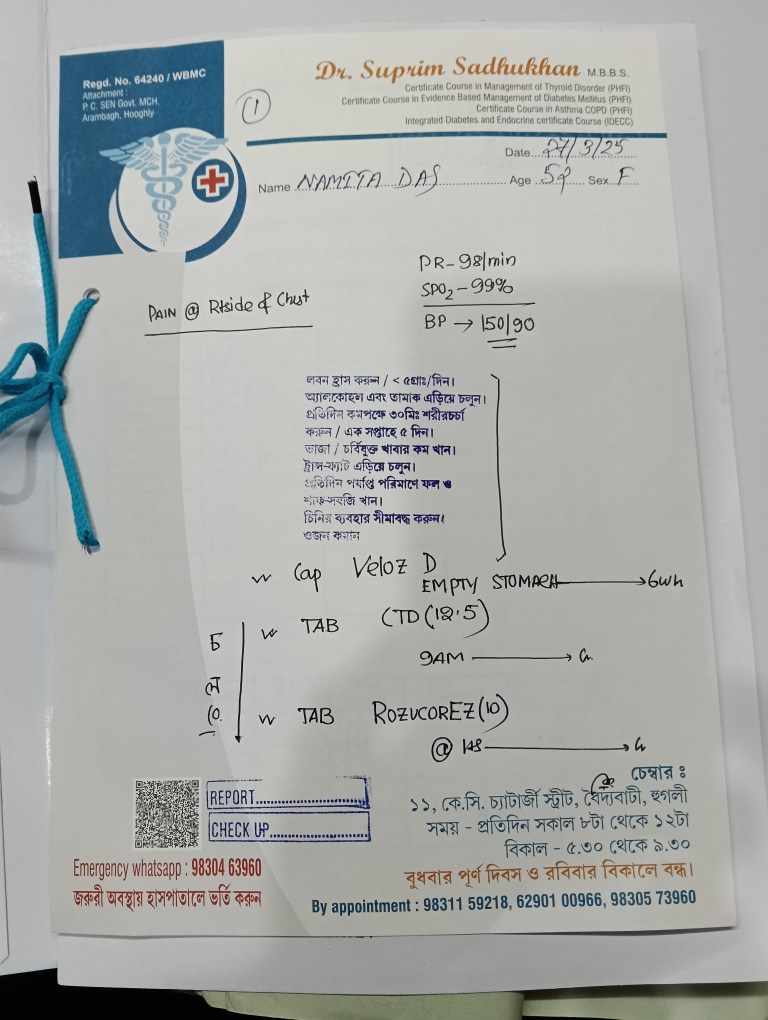 Regd. No. 64240 / WBMC
Attachment :
P. C. SEN Govt. MCH.
Arambagh, Hooghly
1
Dr. Suprim Sadhukhan M.B.B.S.
Certificate Course in Management of Thyroid Disorder (PHFI)
Certificate Course in Evidence Based Management of Diabetes Mellitus (PHFI)
Certificate Course in Asthma COPD (PHFI)
Integrated Diabetes and Endocrine certificate Course (IDECC)
Date 27/3/25
Name NAMITA DAS Age 52 Sex F
PR - 98/min
SPO2 - 99%
BP → 150/90
PAIN @ Rtside of Chest
লবন হ্রাস করুন / < ৫গ্রাঃ/দিন।
অ্যালকোহল এবং তামাক এড়িয়ে চলুন।
প্রতিদিন কমপক্ষে ৩০মিঃ শরীরচর্চা
করুন / এক সপ্তাহে ৫ দিন।
ভাজা / চর্বিযুক্ত খাবার কম খান।
ট্রান্স-ফ্যাট এড়িয়ে চলুন।
প্রতিদিন পর্যাপ্ত পরিমাণে ফল ও
শাক-সবজি খান।
চিনির ব্যবহার সীমাবদ্ধ করুন।
ওজন কমান
Cap Veloz D
EMPTY STOMACH → 6wk
TAB CTD (12.5)
9AM →
চ
ল
TAB ROZUCOR EZ (10)
@ →
REPORT
CHECK UP
চেম্বার :
১১, কে.সি. চ্যাটার্জী স্ট্রীট, বৈদ্যবাটী, হুগলী
সময় - প্রতিদিন সকাল ৮টা থেকে ১২টা
বিকাল - ৫.৩০ থেকে ৯.৩০
বুধবার পূর্ণ দিবস ও রবিবার বিকালে বন্ধ।
Emergency whatsapp : 98304 63960
জরুরী অবস্থায় হাসপাতালে ভর্তি করুন
By appointment : 98311 59218, 62901 00966, 98305 73960